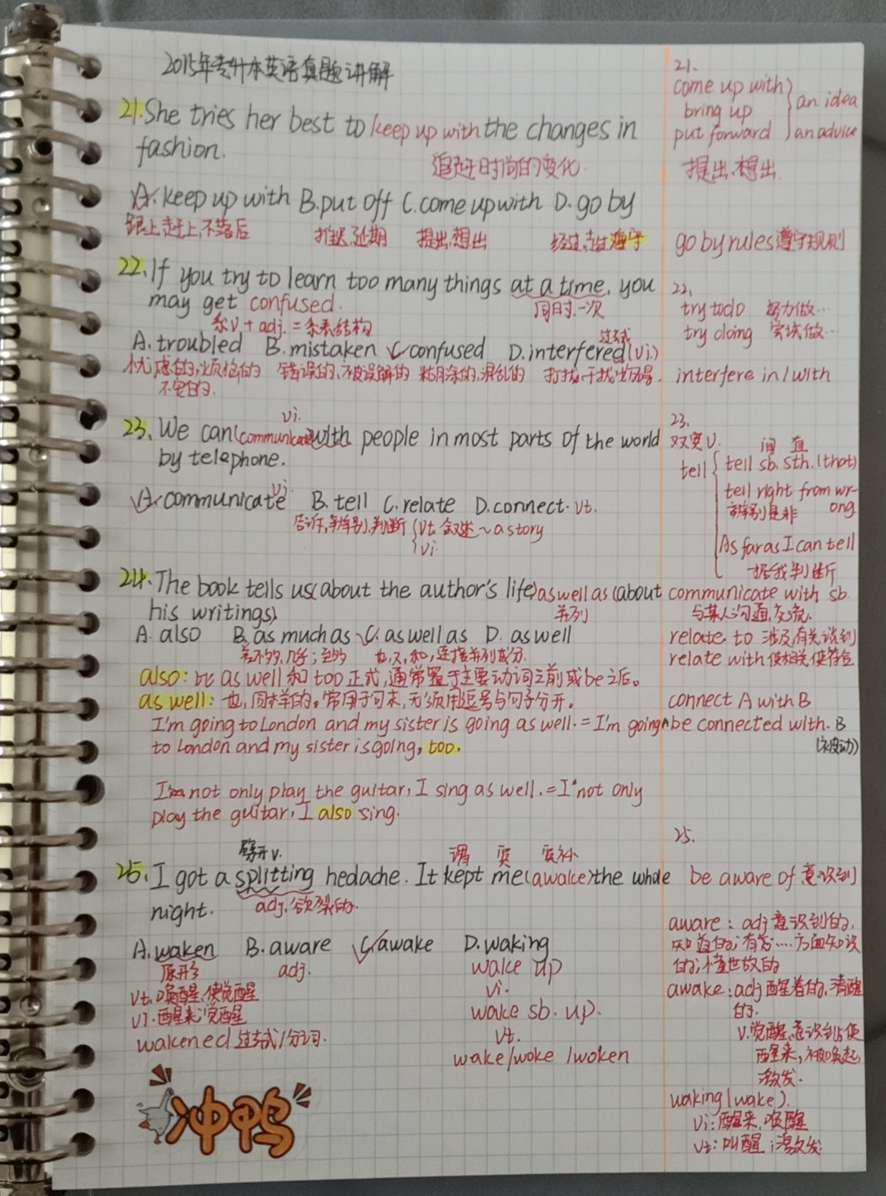 2015年专升本英语真题讲解
21. She tries her best to keep up with the changes in
fashion.
追赶时尚的变化.
A. keep up with B. put off C. come up with D. go by
跟上赶上,不落后 推迟,延期 提出,想出 经过,遵守
22. If you try to learn too many things at a time, you
may get confused. 同时,一次
系v + adj. = 系表结构 过去式
A. troubled B. mistaken C. confused D. interfered (vi.)
忧虑的,烦恼的 错误的,被误解的 糊涂的,混乱的 打扰,干扰,妨碍.
不安的.
vi.
23. We can (communicate) with people in most parts of the world
by telephone.
vi
A. communicate B. tell C. relate D. connect. vt.
告诉,辨别,判断 vt 叙述 ~ a story
vi
24. The book tells us (about the author's life) as well as (about
his writings) 并列
A. also B. as much as C. as well as D. as well
差不多,几乎;至多 也,又,和,连接并列成分.
also: 比 as well 和 too 正式,通常置于主要动词之前或be之后。
as well: 也,同样的。常用于句末,无须用逗号与句子分开。
I'm going to London and my sister is going as well. = I'm going
to London and my sister is going, too.
I'm not only play the guitar, I sing as well. = I'not only
play the guitar, I also sing.
谓 宾 宾补
25. I got a splitting hedache. It kept me (awake) the whole
night. adj. 欲裂的.
A. waken B. aware C. awake D. waking
原形 adj. wake up
vt. 唤醒,使觉醒 vi.
vi. 醒来,觉醒 wake sb. up.
wakened 过去式/分词. vt.
wake/woke/woken
冲鸭
21.
come up with
bring up an idea
put forward an advice
提出,想出
go by rules 遵守规则
22.
try to do 努力做…
try doing 尝试做…
interfere in/with
23.
双宾v. 间 直
tell tell sb. sth. (that)
tell right from wr-
ong
辨别是非
As far as I can tell
据我判断
communicate with sb.
与某人沟通,交流.
relate to 涉及,有关,谈到
relate with 使相关,使符合
connect A with B
A be connected with. B
(被动)
25.
be aware of 意识到
aware: adj 意识到的,
知道的;有…方面知识
的;懂世故的
awake: adj 醒着的,清醒
的.
v. 觉醒,意识到,使
醒来,被唤起,
激发.
waking (wake).
vi: 醒来,唤醒
vt: 叫醒;激发